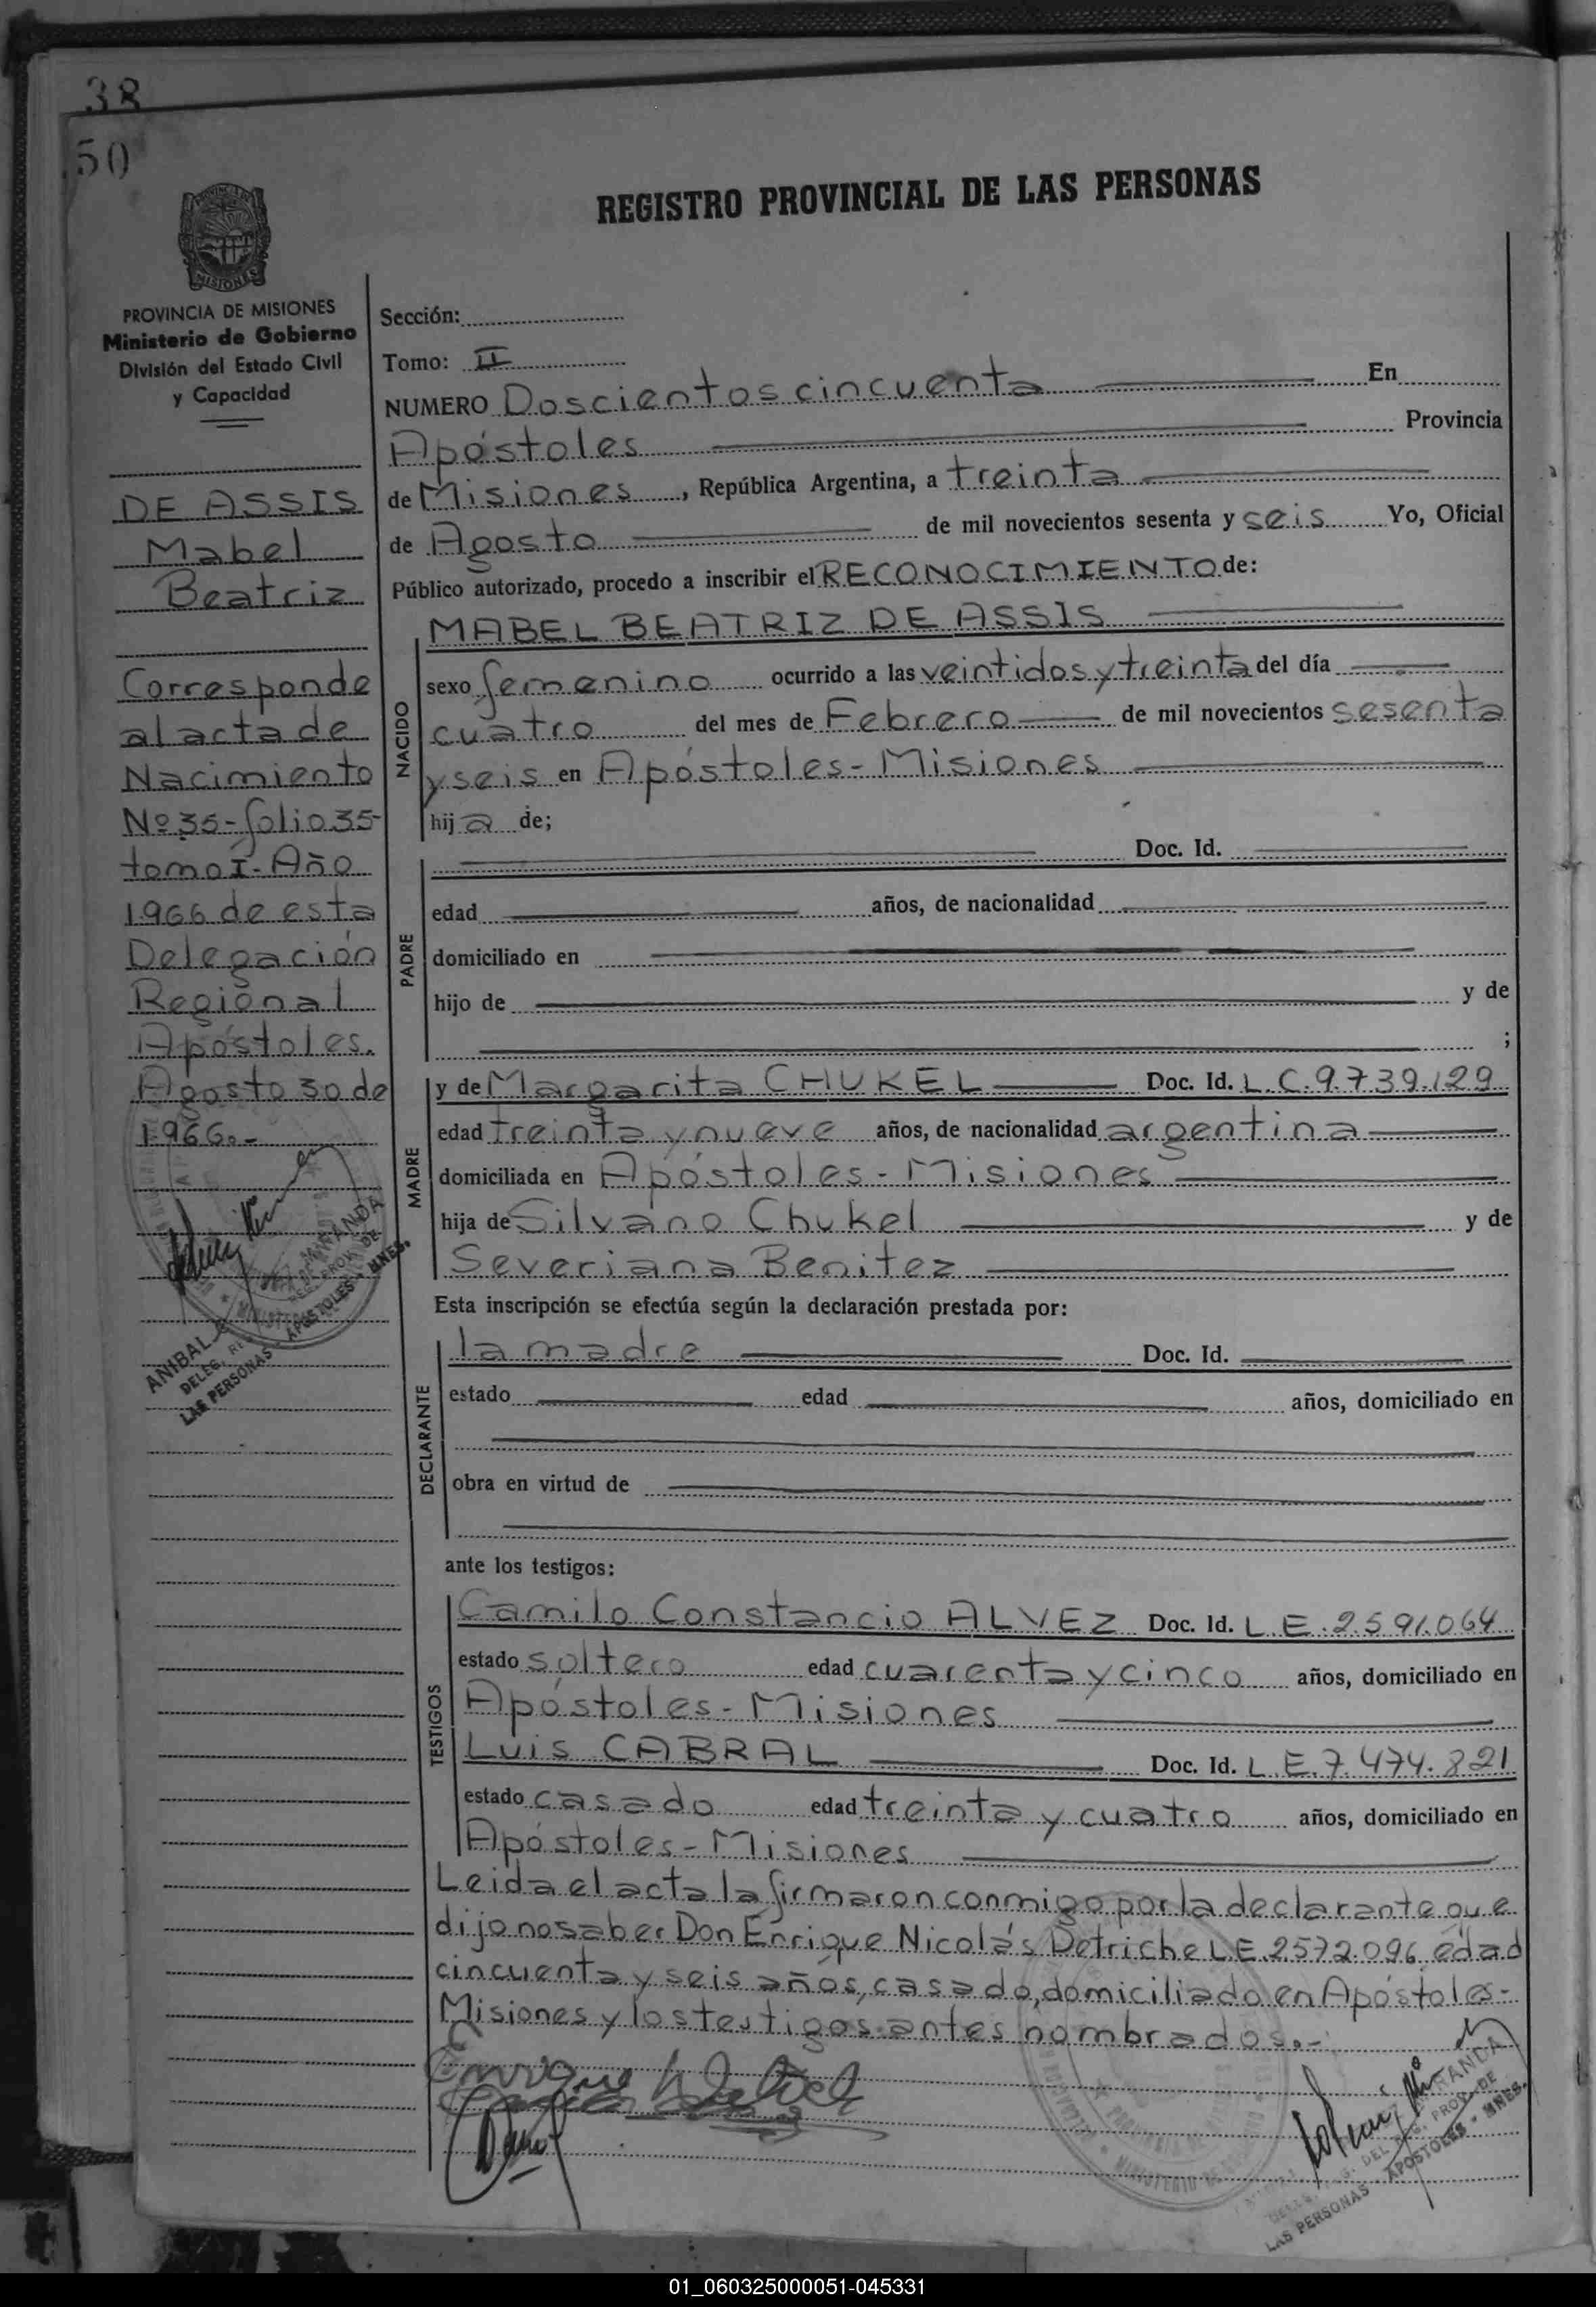 38
50
REGISTRO PROVINCIAL DE LAS PERSONAS
PROVINCIA DE MISIONES
Ministerio de Gobierno
División del Estado Civil
y Capacidad
DE ASSIS
Mabel
Beatriz
Corresponde
al acta de
Nacimiento
Nº 35 - folio 35-
tomo I - Año
1966 de esta
Delegación
Regional
Apóstoles.
Agosto 30 de
1966.-
Sección:
Tomo: II
NUMERO Doscientos cincuenta En
Apóstoles Provincia
de Misiones, República Argentina, a treinta
de Agosto de mil novecientos sesenta y seis Yo, Oficial
Público autorizado, procedo a inscribir el RECONOCIMIENTO de:
MABEL BEATRIZ DE ASSIS
NACIDO
sexo femenino ocurrido a las veintidos y treinta del día
cuatro del mes de Febrero de mil novecientos sesenta
y seis en Apóstoles - Misiones
hija de;
PADRE
Doc. Id.
edad años, de nacionalidad
domiciliado en
hijo de y de
;
MADRE
y de Margarita CHUKEL Doc. Id. L.C. 9.739.129
edad treinta y nueve años, de nacionalidad argentina
domiciliada en Apóstoles - Misiones
hija de Silvano Chukel y de
Severiana Benitez
Esta inscripción se efectúa según la declaración prestada por:
DECLARANTE
la madre Doc. Id.
estado edad años, domiciliado en
obra en virtud de
ante los testigos:
TESTIGOS
Camilo Constancio ALVEZ Doc. Id. L.E. 2.591.064
estado soltero edad cuarenta y cinco años, domiciliado en
Apóstoles - Misiones
Luis CABRAL Doc. Id. L.E. 7.474.821
estado casado edad treinta y cuatro años, domiciliado en
Apóstoles - Misiones
Leida el acta la firmaron conmigo por la declarante que
dijo no saber Don Enrique Nicolás Detriche L.E. 2572.096 edad
cincuenta y seis años, casado, domiciliado en Apóstoles -
Misiones y los testigos antes nombrados.-
ANIBAL
LAS PERSONAS - APOSTOLES - MNES.
LAS PERSONAS - APOSTOLES - MNES.
01_060325000051-045331